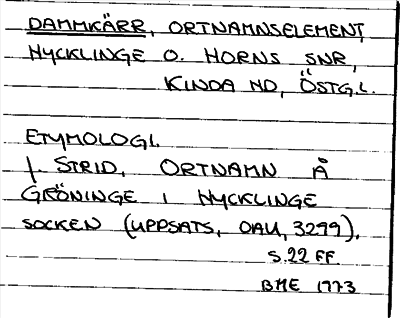 DAMMKÄRR, ORTNAMNSELEMENT,
HYCKLINGE O. HORNS SNR,
KINDA HD, ÖSTG.L.
ETYMOLOGI.
J. STRID, ORTNAMN Å
GRÖNINGE I HYCKLINGE
SOCKEN (UPPSATS, OAU, 3299).
S.22 FF.
BME 1973